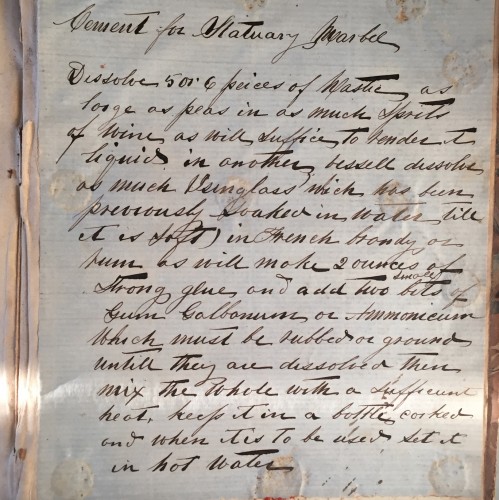 Cement for Statuary Marbel
Dissolve 5 or 6 peices of Mastic as
large as peas in as much Sprits
of Wine as will suffice to render it
liquid in another vessell dissolve
as much Isinglass wich has been
previously soaked in water till
it is soft) in French brandy or
rum as will make 2 ounces of
strong glue and add two small bits of
Gum Galbanum or Ammonicum
Which must be rubbed or ground
untill they are dissolved then
mix the whole with a sufficient
heat. keep it in a bottle corked
and when it is to be used set it
in hot water